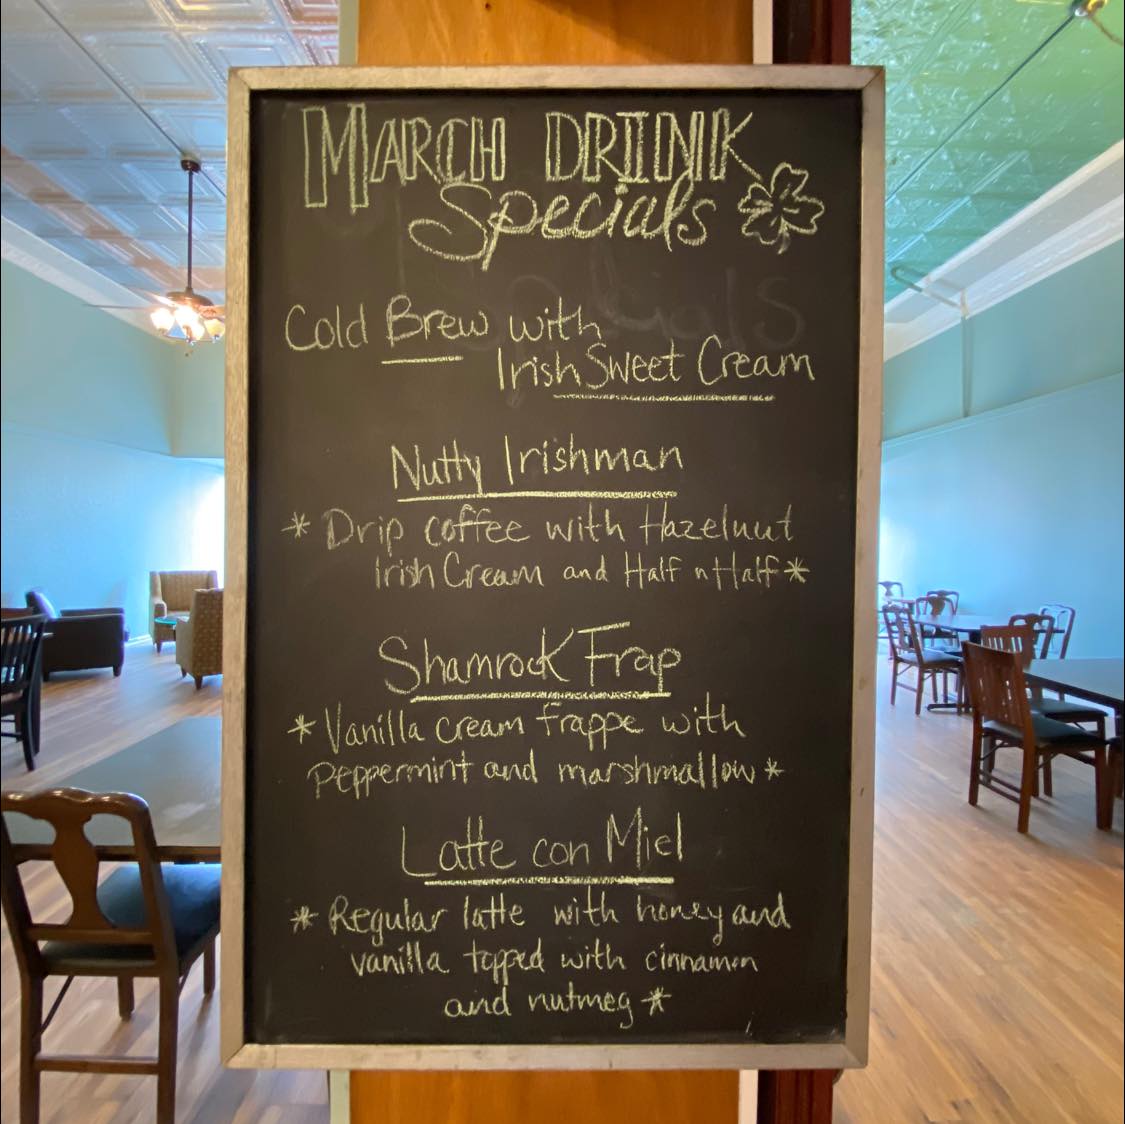 MARCH DRINK
Specials
Cold Brew with
Irish Sweet Cream
Nutty Irishman
* Drip coffee with Hazelnut
Irish Cream and Half n Half *
Shamrock Frap
* Vanilla cream frappe with
peppermint and marshmallow *
Latte con Miel
* Regular latte with honey and
vanilla topped with cinnamon
and nutmeg *